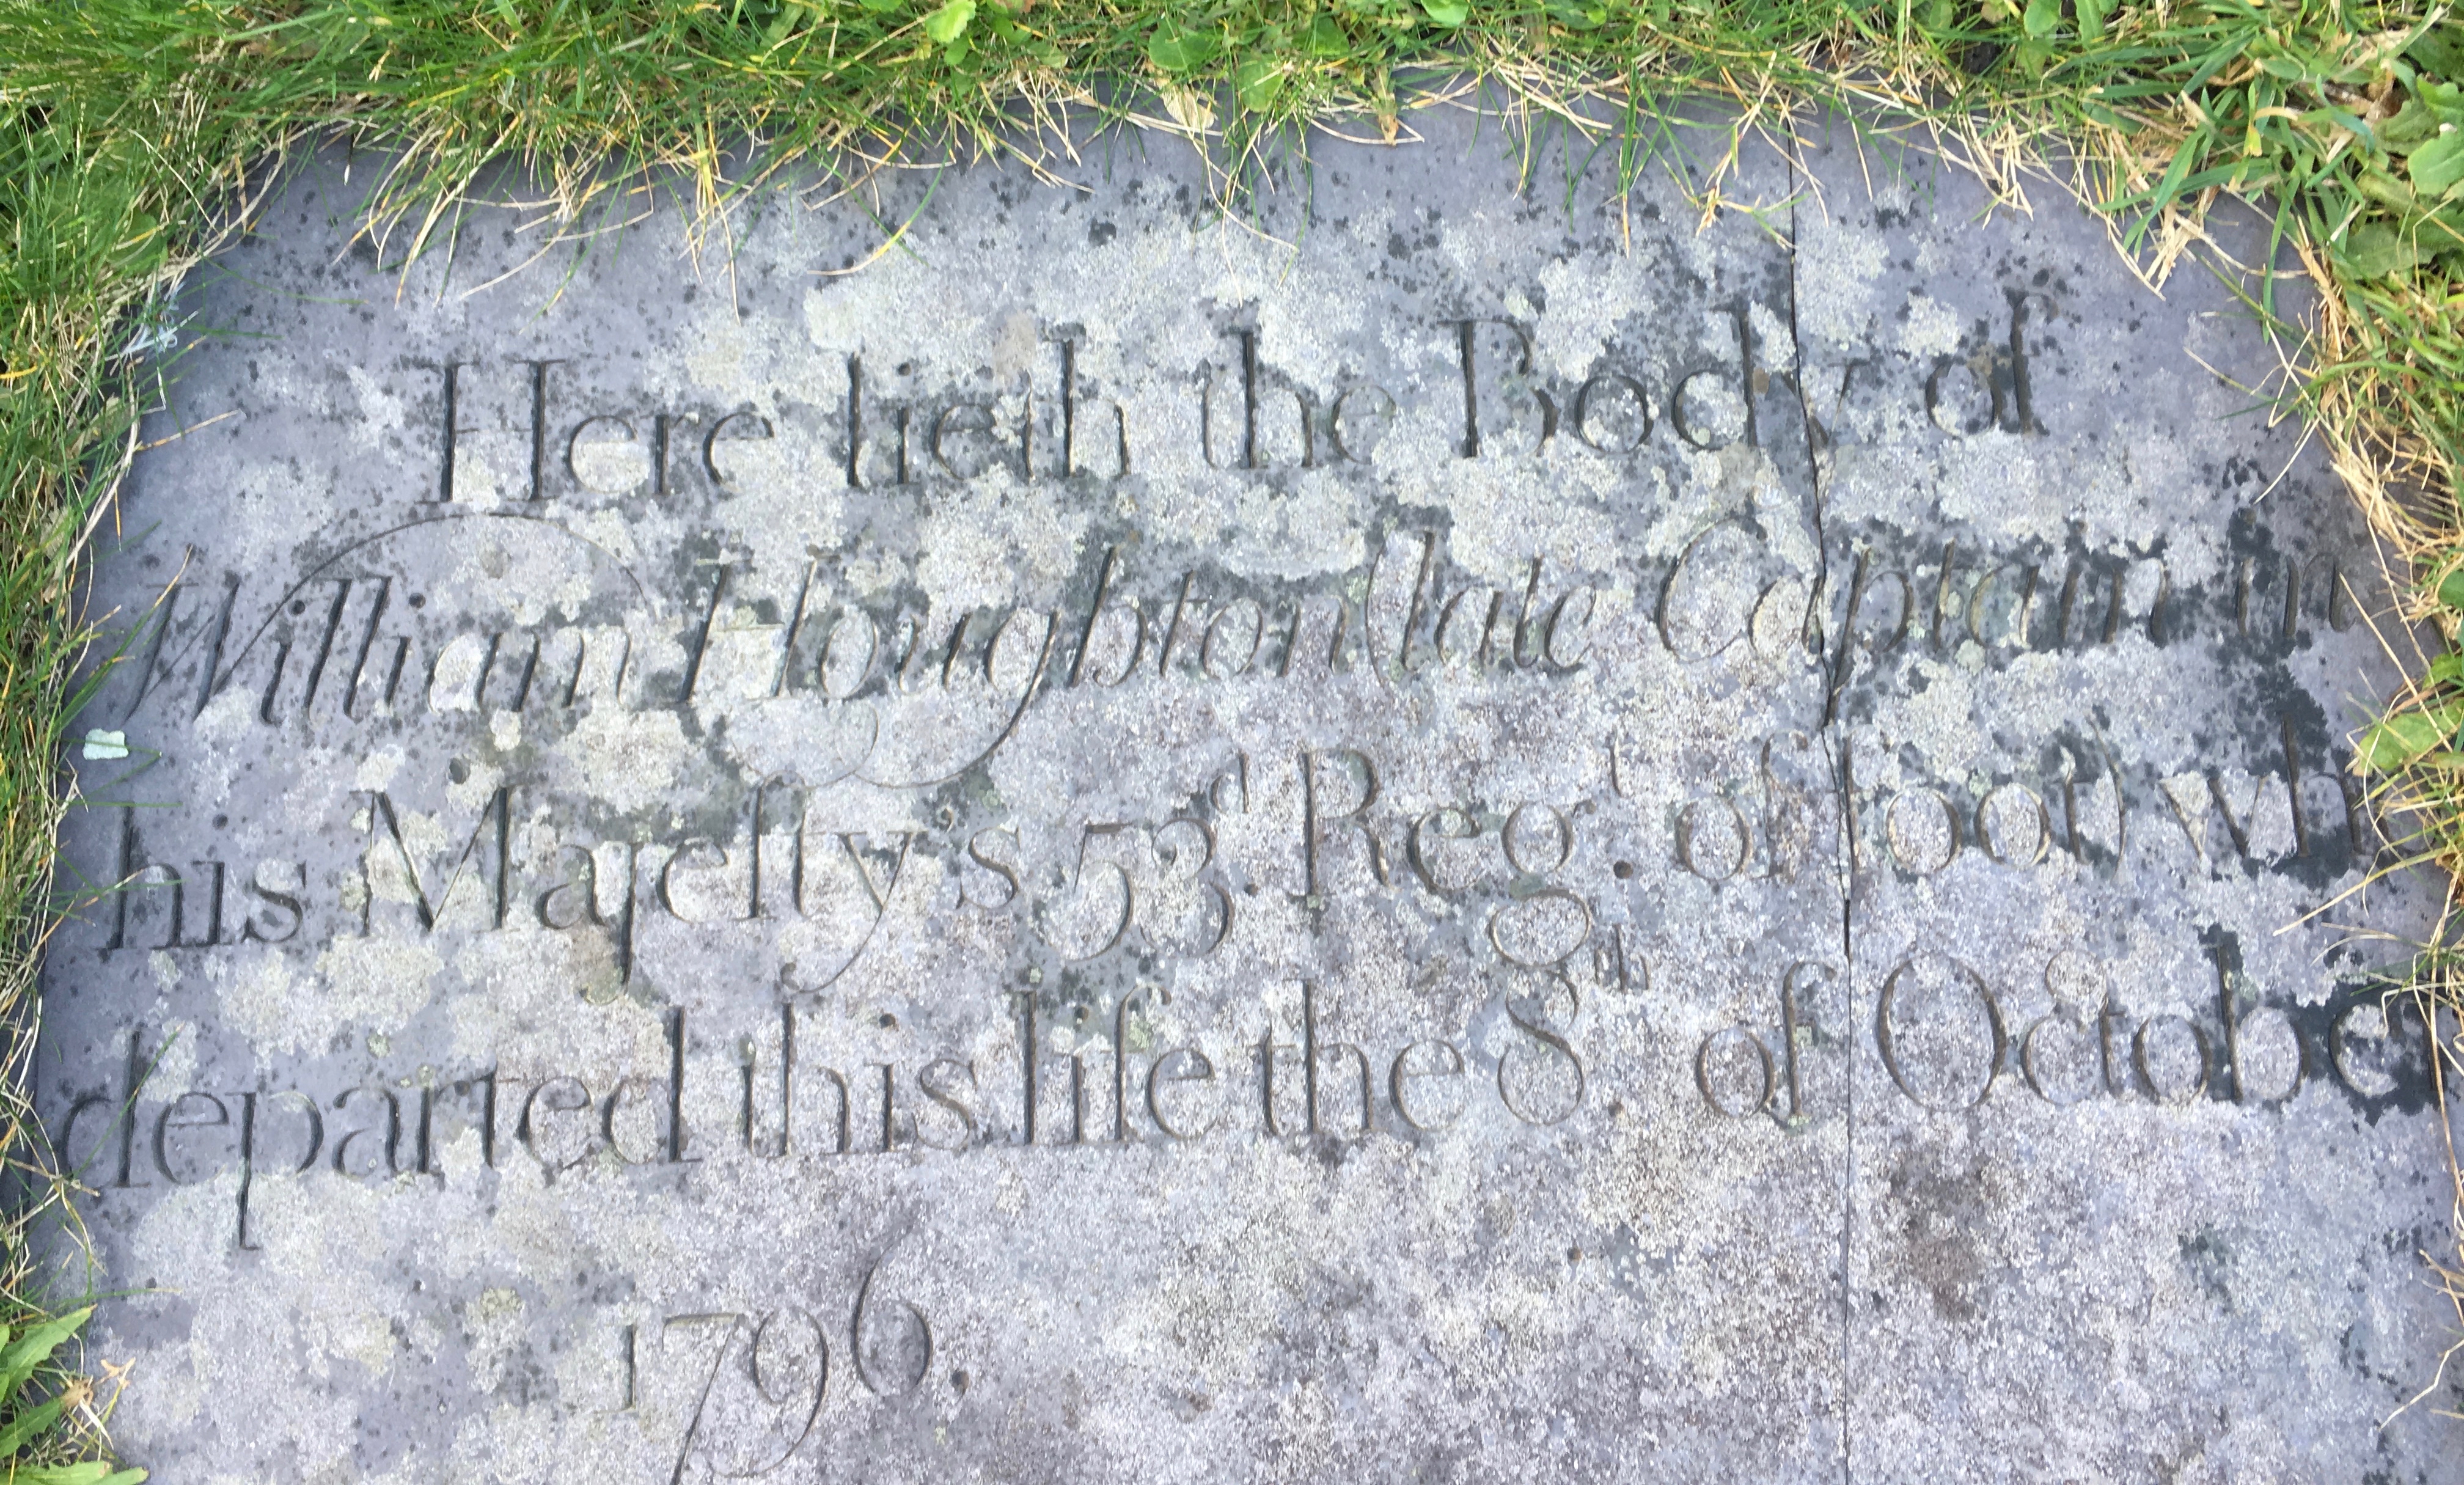 Here lieth the Body of
William Houghton (late Captain in
his Majeſty's 53.ᵈ Reg.ᵗ of foot) wh
departed this life the 8ᵗʰ of October
1796.